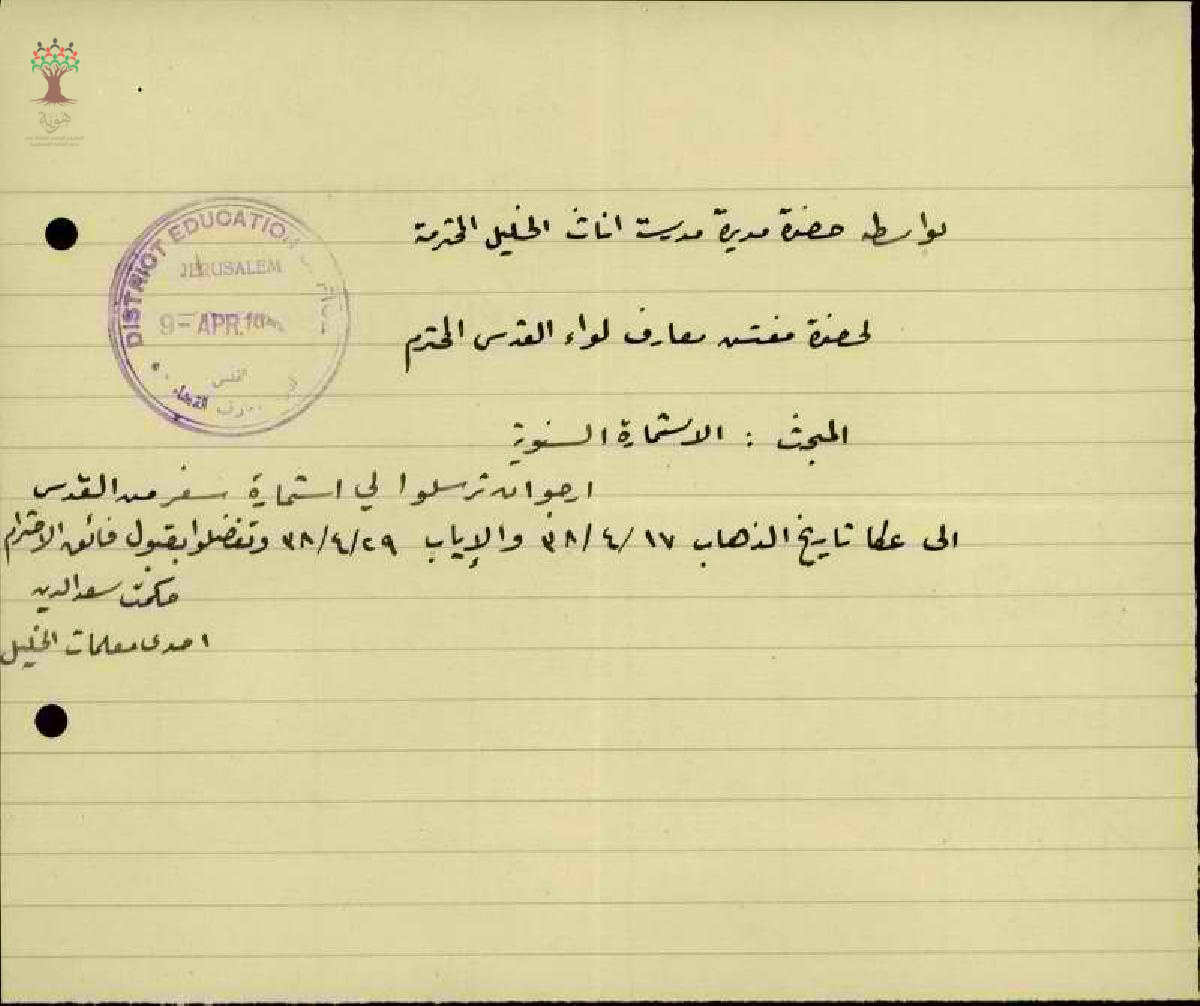 هوية
DISTRICT EDUCATION
JERUSALEM
9 - APR. 19
القدس
بواسطة حضرة مديرة مدرسة اناث الخليل المحترمة
لحضرة مفتش معارف لواء القدس المحترم
المبحث : الاستمارة السنوية
ارجو ان ترسلوا لي استمارة سفر من القدس
الى عكا تاريخ الذهاب ١٧/٤/٣٨ والإياب ٢٩/٤/٣٨ وتفضلوا بقبول فائق الاحترام
حكمت سعد الدين
احدى معلمات الخليل